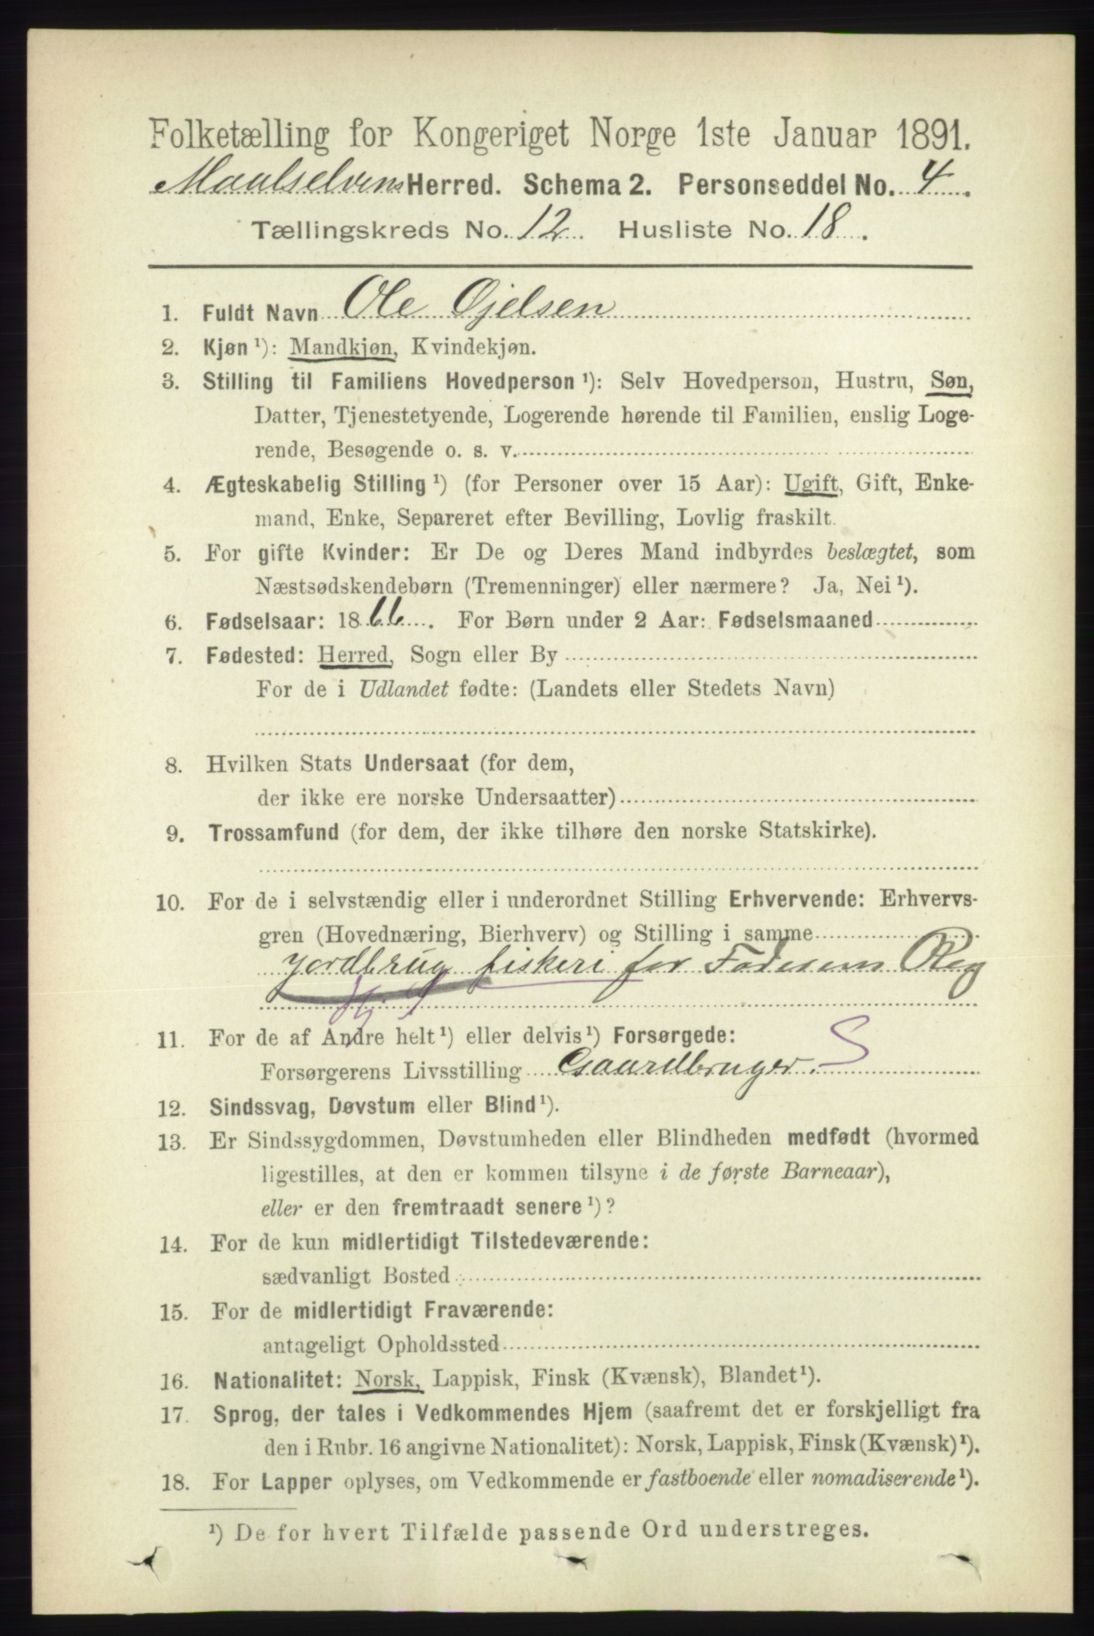 Folketælling for Kongeriget Norge 1ste Januar 1891.
Maalselvens Herred. Schema 2. Personseddel No. 4.
Tællingskreds No. 12. Husliste No. 18.
1. Fuldt Navn Ole Ojelsen
2. Kjøn ¹): Mandkjøn, Kvindekjøn.
3. Stilling til Familiens Hovedperson ¹): Selv Hovedperson, Hustru, Søn,
Datter, Tjenestetyende, Logerende hørende til Familien, enslig Loge-
rende, Besøgende o. s. v.
4. Ægteskabelig Stilling ¹) (for Personer over 15 Aar): Ugift, Gift, Enke-
mand, Enke, Separeret efter Bevilling, Lovlig fraskilt.
5. For gifte Kvinder: Er De og Deres Mand indbyrdes beslægtet, som
Næstsødskendebørn (Tremenninger) eller nærmere? Ja, Nei ¹).
6. Fødselsaar: 1866. For Børn under 2 Aar: Fødselsmaaned
7. Fødested: Herred, Sogn eller By
For de i Udlandet fødte: (Landets eller Stedets Navn)
8. Hvilken Stats Undersaat (for dem,
der ikke ere norske Undersaatter)
9. Trossamfund (for dem, der ikke tilhøre den norske Statskirke).
10. For de i selvstændig eller i underordnet Stilling Erhvervende: Erhvervs-
gren (Hovednæring, Bierhverv) og Stilling i samme
jordbrug fiskeri for Faderens Reg
11. For de af Andre helt ¹) eller delvis ¹) Forsørgede:
Forsørgerens Livsstilling Gaardbruger. S
12. Sindssvag, Døvstum eller Blind ¹).
13. Er Sindssygdommen, Døvstumheden eller Blindheden medfødt (hvormed
ligestilles, at den er kommen tilsyne i de første Barneaar),
eller er den fremtraadt senere ¹)?
14. For de kun midlertidigt Tilstedeværende:
sædvanligt Bosted
15. For de midlertidigt Fraværende:
antageligt Opholdssted
16. Nationalitet: Norsk, Lappisk, Finsk (Kvænsk), Blandet ¹).
17. Sprog, der tales i Vedkommendes Hjem (saafremt det er forskjelligt fra
den i Rubr. 16 angivne Nationalitet): Norsk, Lappisk, Finsk (Kvænsk) ¹).
18. For Lapper oplyses, om Vedkommende er fastboende eller nomadiserende ¹).
¹) De for hvert Tilfælde passende Ord understreges.